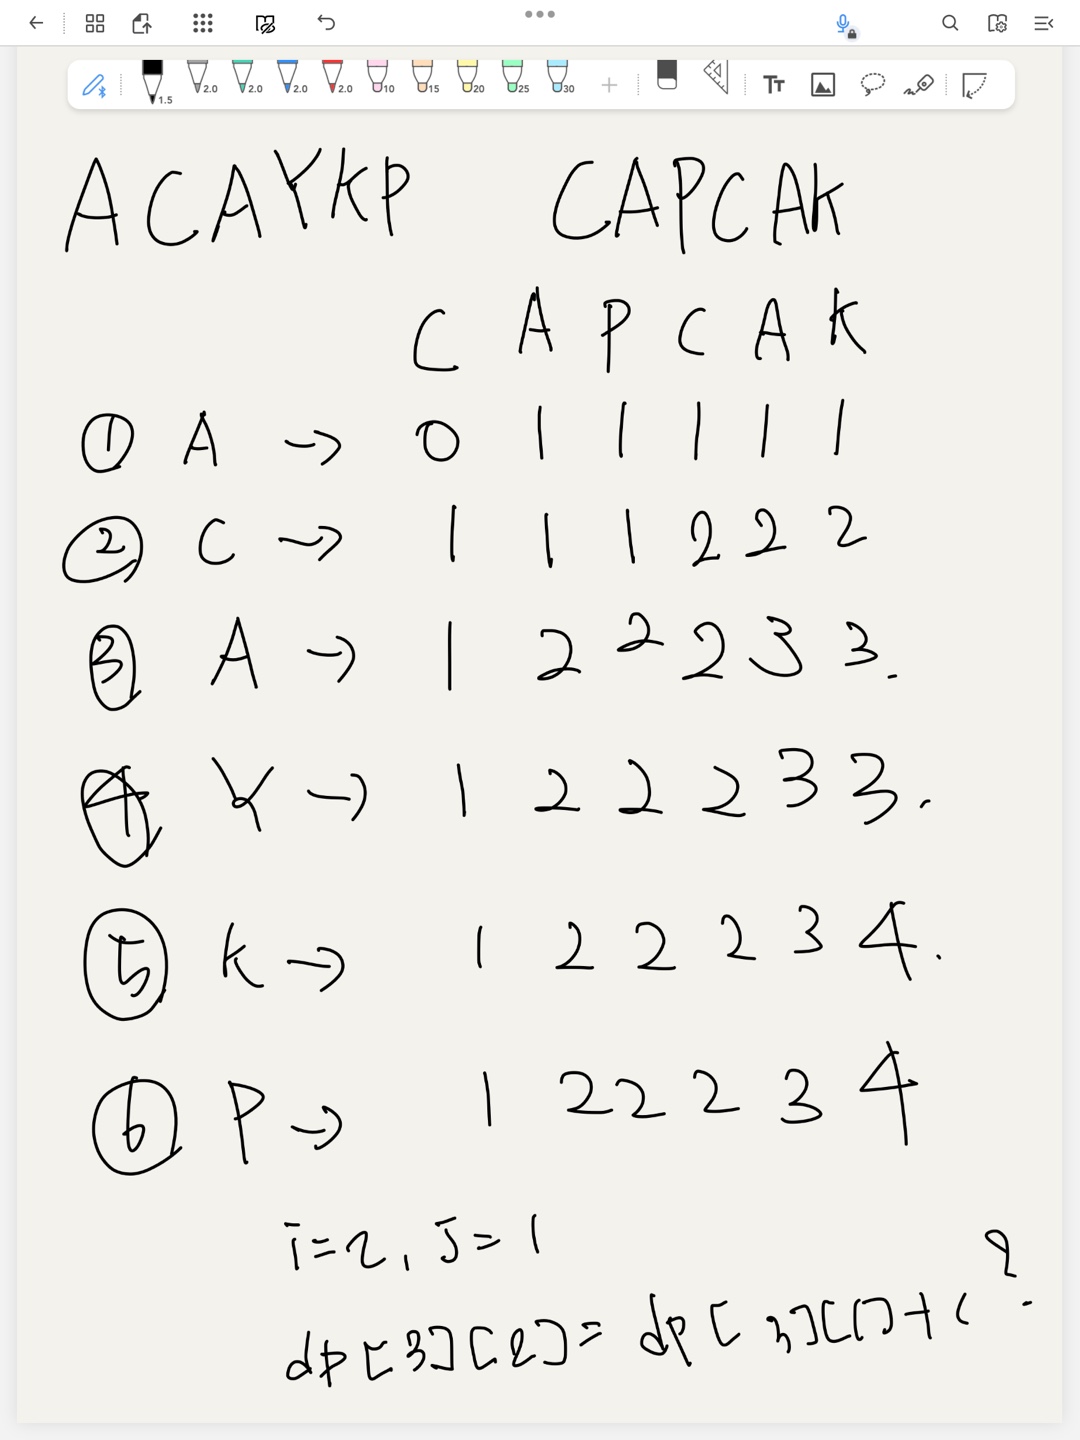 1.5 2.0 2.0 2.0 2.0 10 15 20 25 30 Tт
ACAYKP CAPCAK
C A P C A K
① A → 0 1 1 1 1 1
② C → 1 1 1 2 2 2
③ A → 1 2 2 2 3 3.
④ Y → 1 2 2 2 3 3.
⑤ K → 1 2 2 2 3 4.
⑥ P → 1 2 2 2 3 4
i=2, J=1
dp[3][2]= dp[3][1]+1?